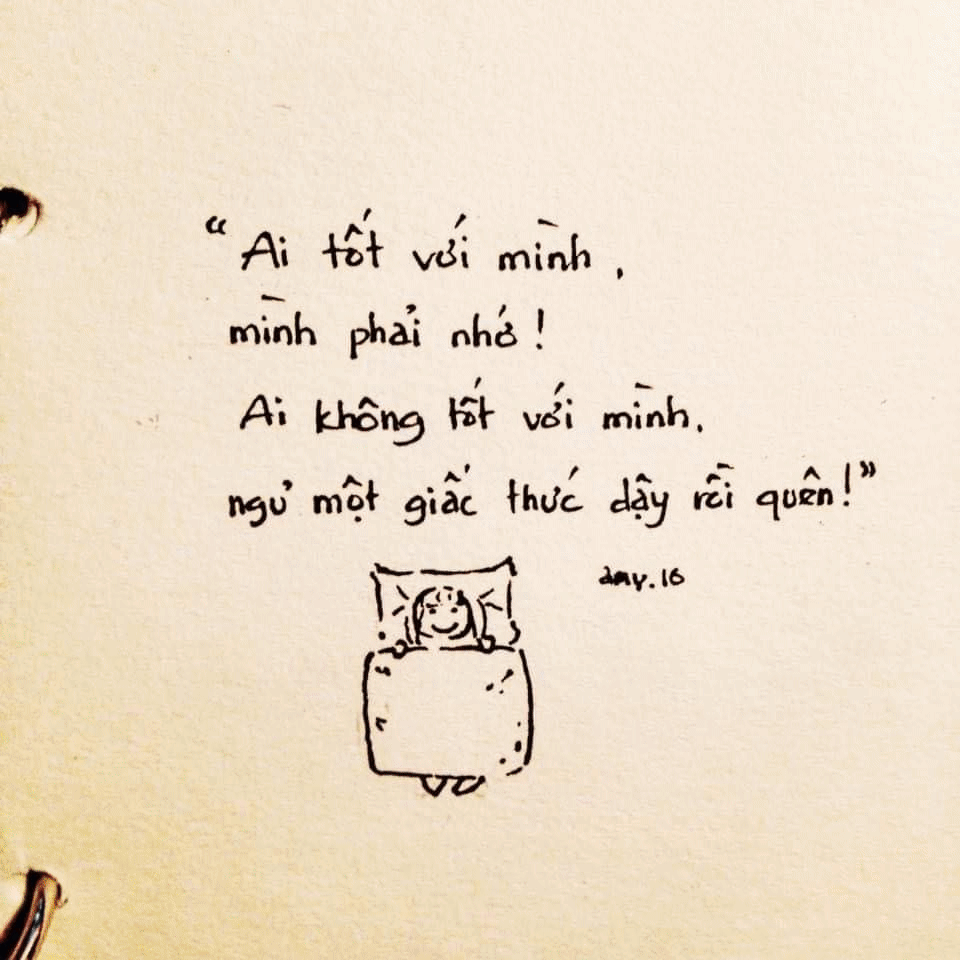 “Ai tốt với mình,
mình phải nhớ!
Ai không tốt với mình,
ngủ một giấc thức dậy rồi quên!”
dny.16